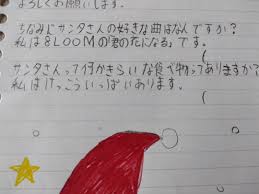 よろしくお願いします。
ちなみにサンタさんの好きな曲はなんですか?
私は8LOOMの「君の花になる」です。
(
サンタさんって何かきらいな食べ物ってありますか?
私はけっこういっぱいあります。
(